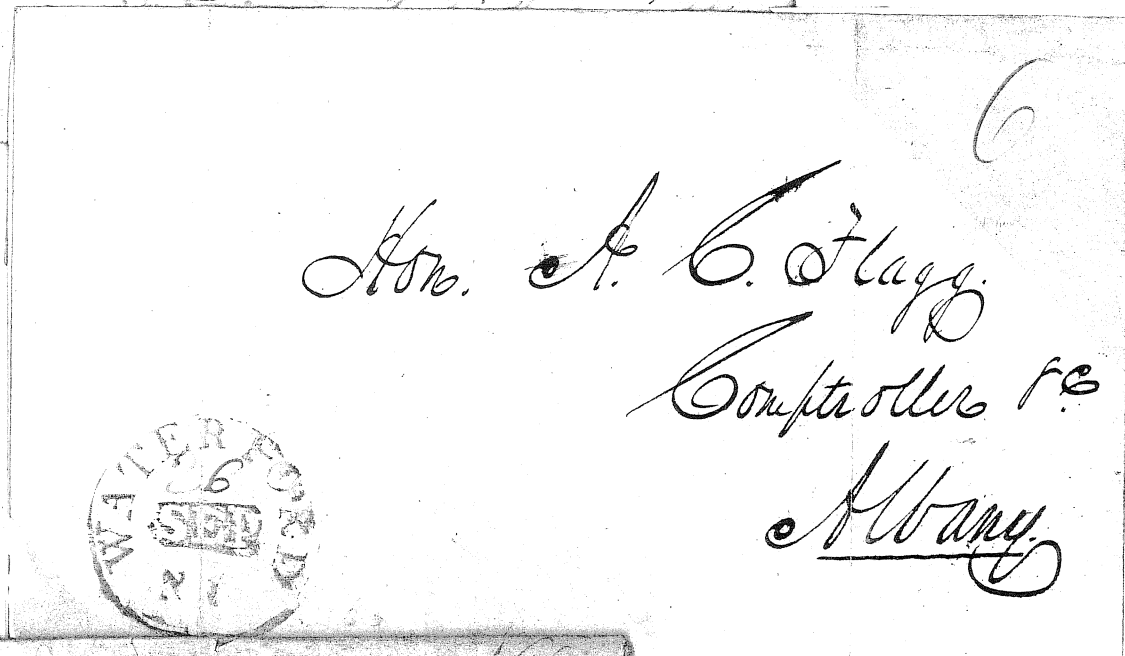 6
Hon. A. C. Flagg.
Comptroller &c
Albany.
WATERFORD
26
SEP
N Y